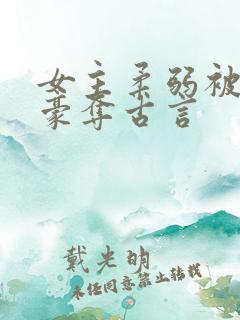 女主柔弱被
豪夺古言
戴光明
未经同意禁止转载